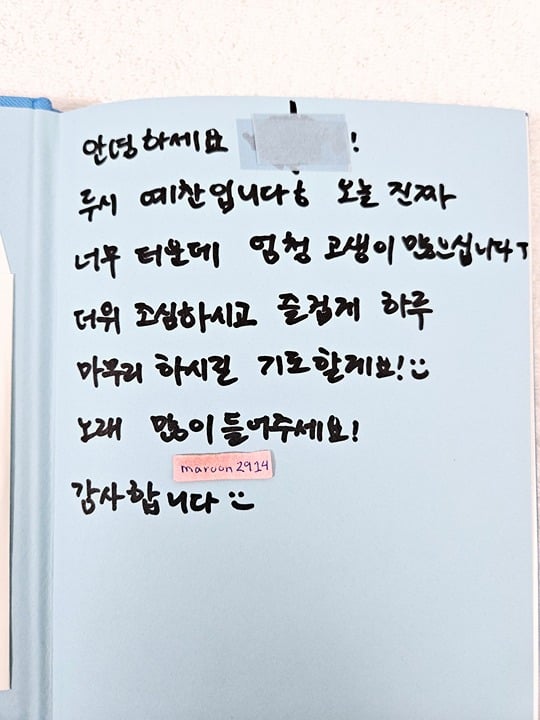 안녕하세요 !
루시 예찬입니다! 오늘 진짜
너무 더운데 엄청 고생이 많으십니다ㅜ
더위 조심하시고 즐겁게 하루
마무리 하시길 기도할게요!
노래 많이 들어주세요!
maroon2914
감사합니다